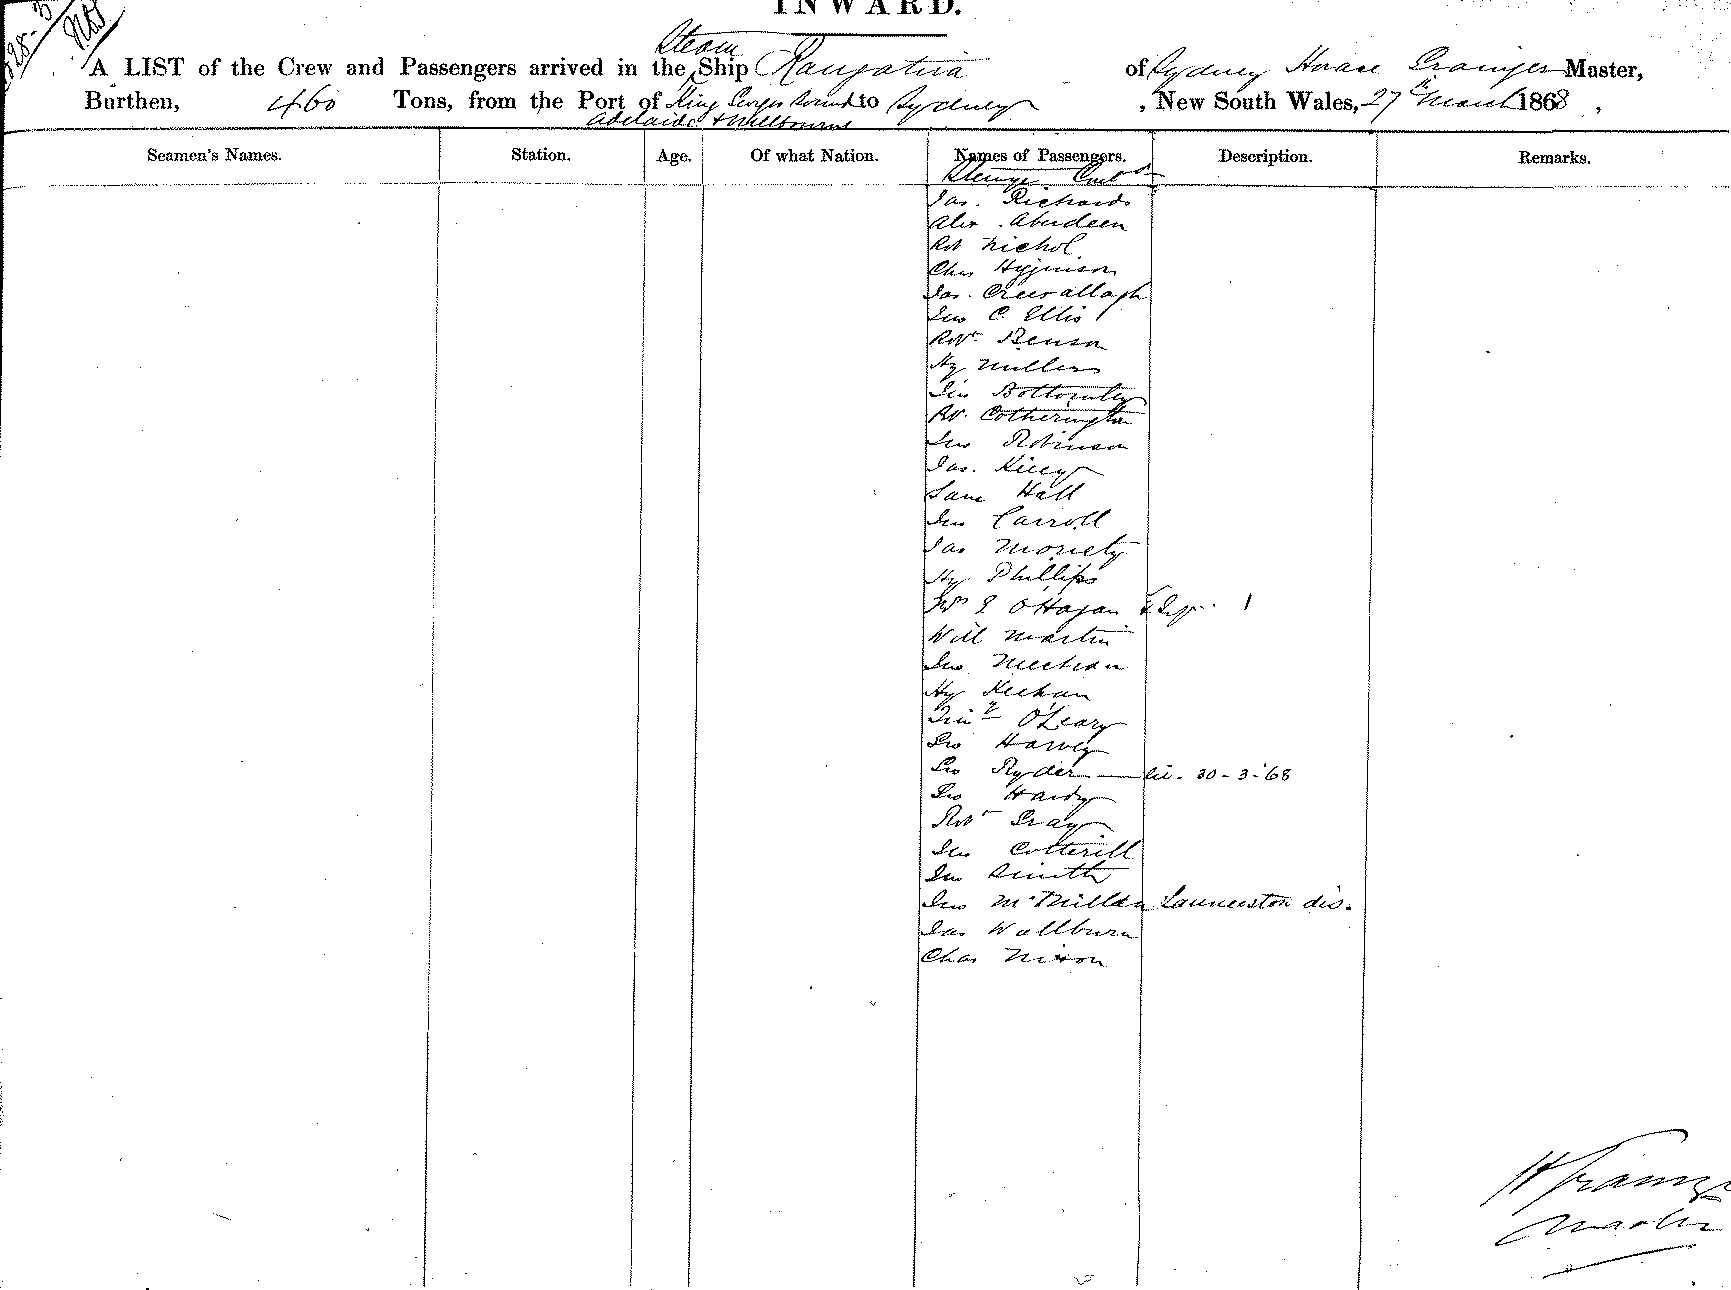 INWARD.
Steam
A LIST of the Crew and Passengers arrived in the Ship Rangatira of Sydney Horace Grainger Master,
Burthen, 460 Tons, from the Port of King Georges Sound to Sydney, New South Wales, 27th March 1868
Adelaide & Melbourne
Seamen's Names. Station. Age. Of what Nation. Names of Passengers. Description. Remarks.
Jas. Richards
Alex. Aberdeen
Rob Nichol
Chas
Jas.
Jno C. Ellis
Robt Benson
Hy Millers
Jno Bottomley
Rob. Cotherington
Jno Robinson
Jas. Kelly
Saml Hall
Jno Carroll
Jas Moriety
Hy Phillips
O'Hagan 1
Will Martin
Jno Meehan
Hy Keehan
Timy O'Leary
Geo Harvey
Geo Ryder — 30-3-'68
Geo Hardy
Robt Gray
Jno Cotterill
Jno Smith
Jno McMillan Launceston dis.
Jas Wallburn
Chas Nixon
H Grainger
Master